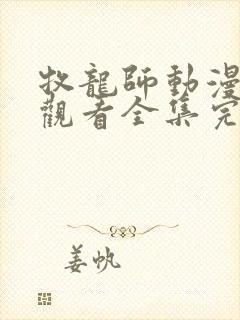 牧龍師動漫
觀看全集完
姜帆